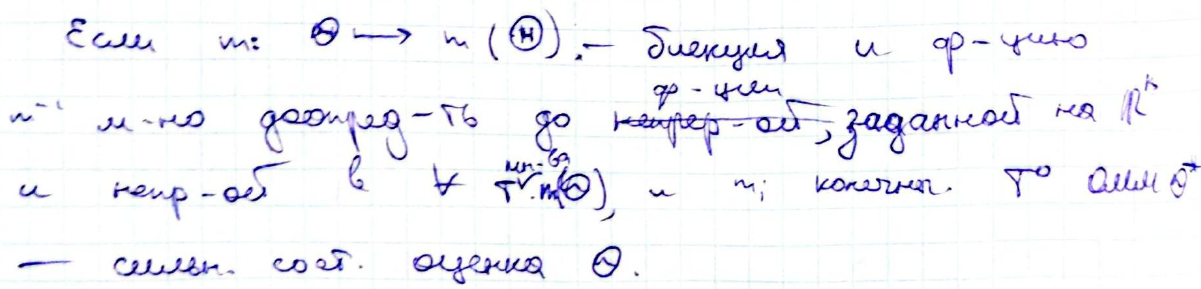 Если m: Θ → m(Θ). – биекция и ф-цию
m⁻¹ м-но доопред-ть до ф-ции непрер-ой, заданной на ℝᵏ
и непр-ой в ∀ т. мн-ва m(Θ), и mᵢ конечны. то ОММ θ*
— сильн. сост. оценка θ.